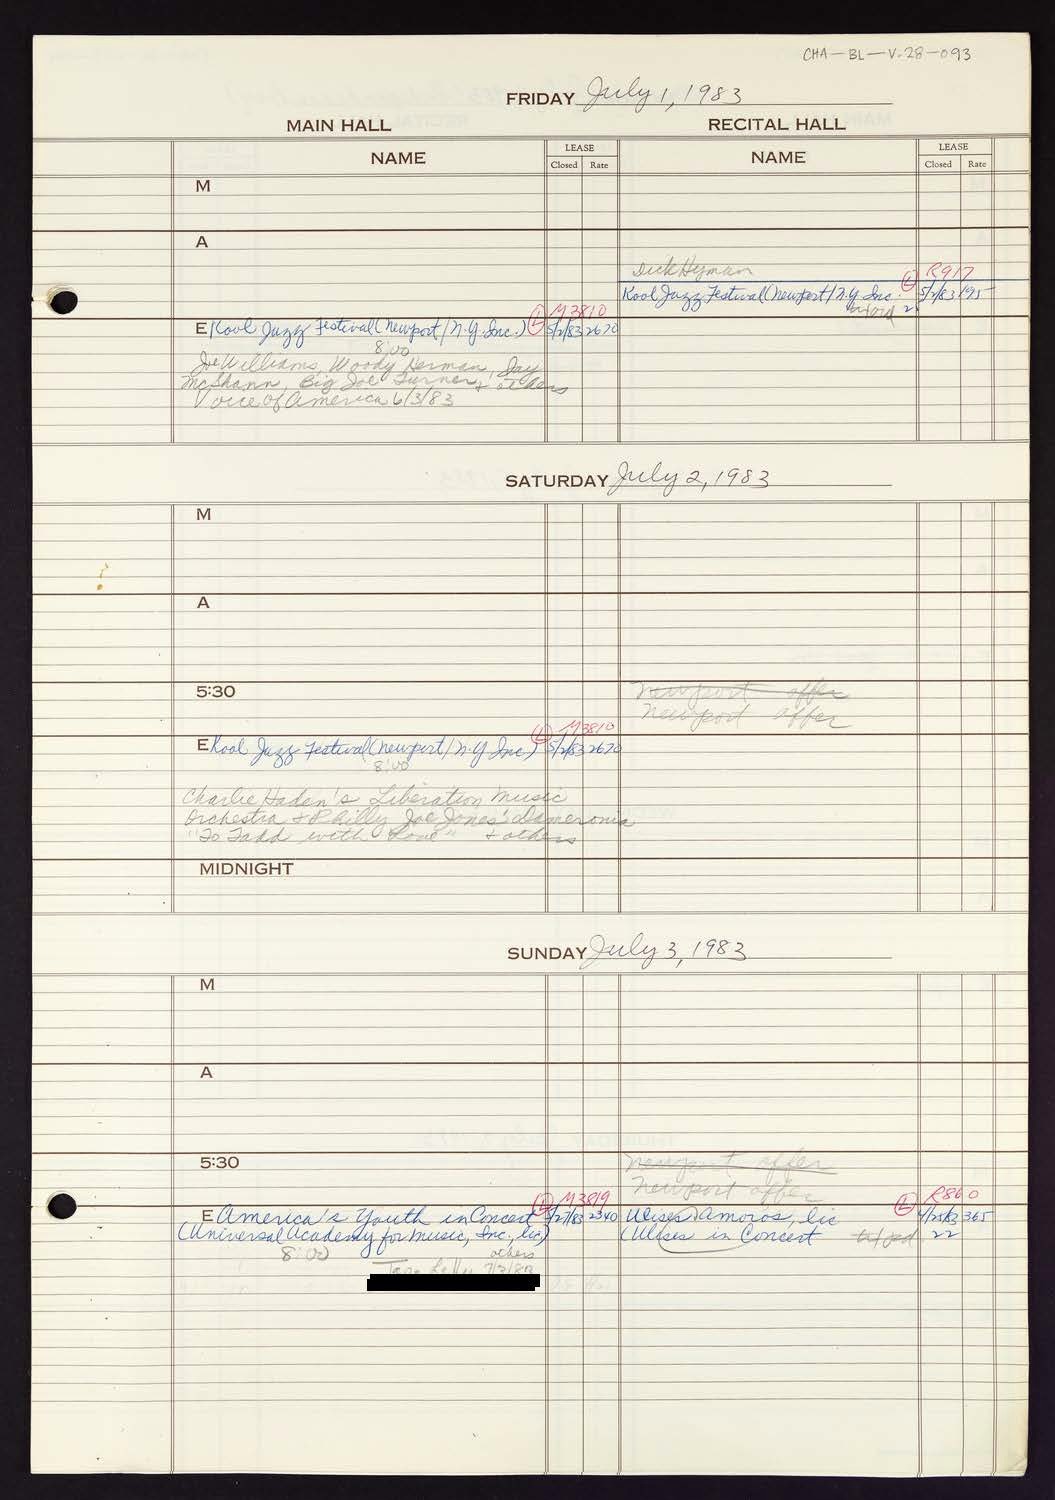 CHA-BL-V.28-093
FRIDAY July 1, 1983
MAIN HALL
RECITAL HALL
NAME
LEASE
Closed Rate
NAME
LEASE
Closed Rate
M
A
Dick Hyman
R917
Kool Jazz Festival (Newport/N.Y. Inc. L 5/2/83 195
2
M3810
E Kool Jazz Festival (Newport/N.Y. Inc.) L 5/2/83 2670
8:00
Joe Williams, Woody Herman, Jay
McShann, Big Joe Turner + others
Voice of America 6/3/83
SATURDAY July 2, 1983
M
A
5:30
Newport offer
Newport offer
M3810
E Kool Jazz Festival (Newport/N.Y. Inc.) L 5/2/83 2670
8:00
Charlie Haden's Liberation Music
Orchestra + Philly Joe Jones' Dameronia
"To Tadd with Love" + others
MIDNIGHT
SUNDAY July 3, 1983
M
A
5:30
Newport offer
Newport offer
M3819
R860
E America's Youth in Concert L 5/27/83 2340
(Universal Academy for Music, Inc., lic)
8:00
others
7/3/83
Ulises Amoros, lic L 4/25/83 365
(Ulises in Concert
22